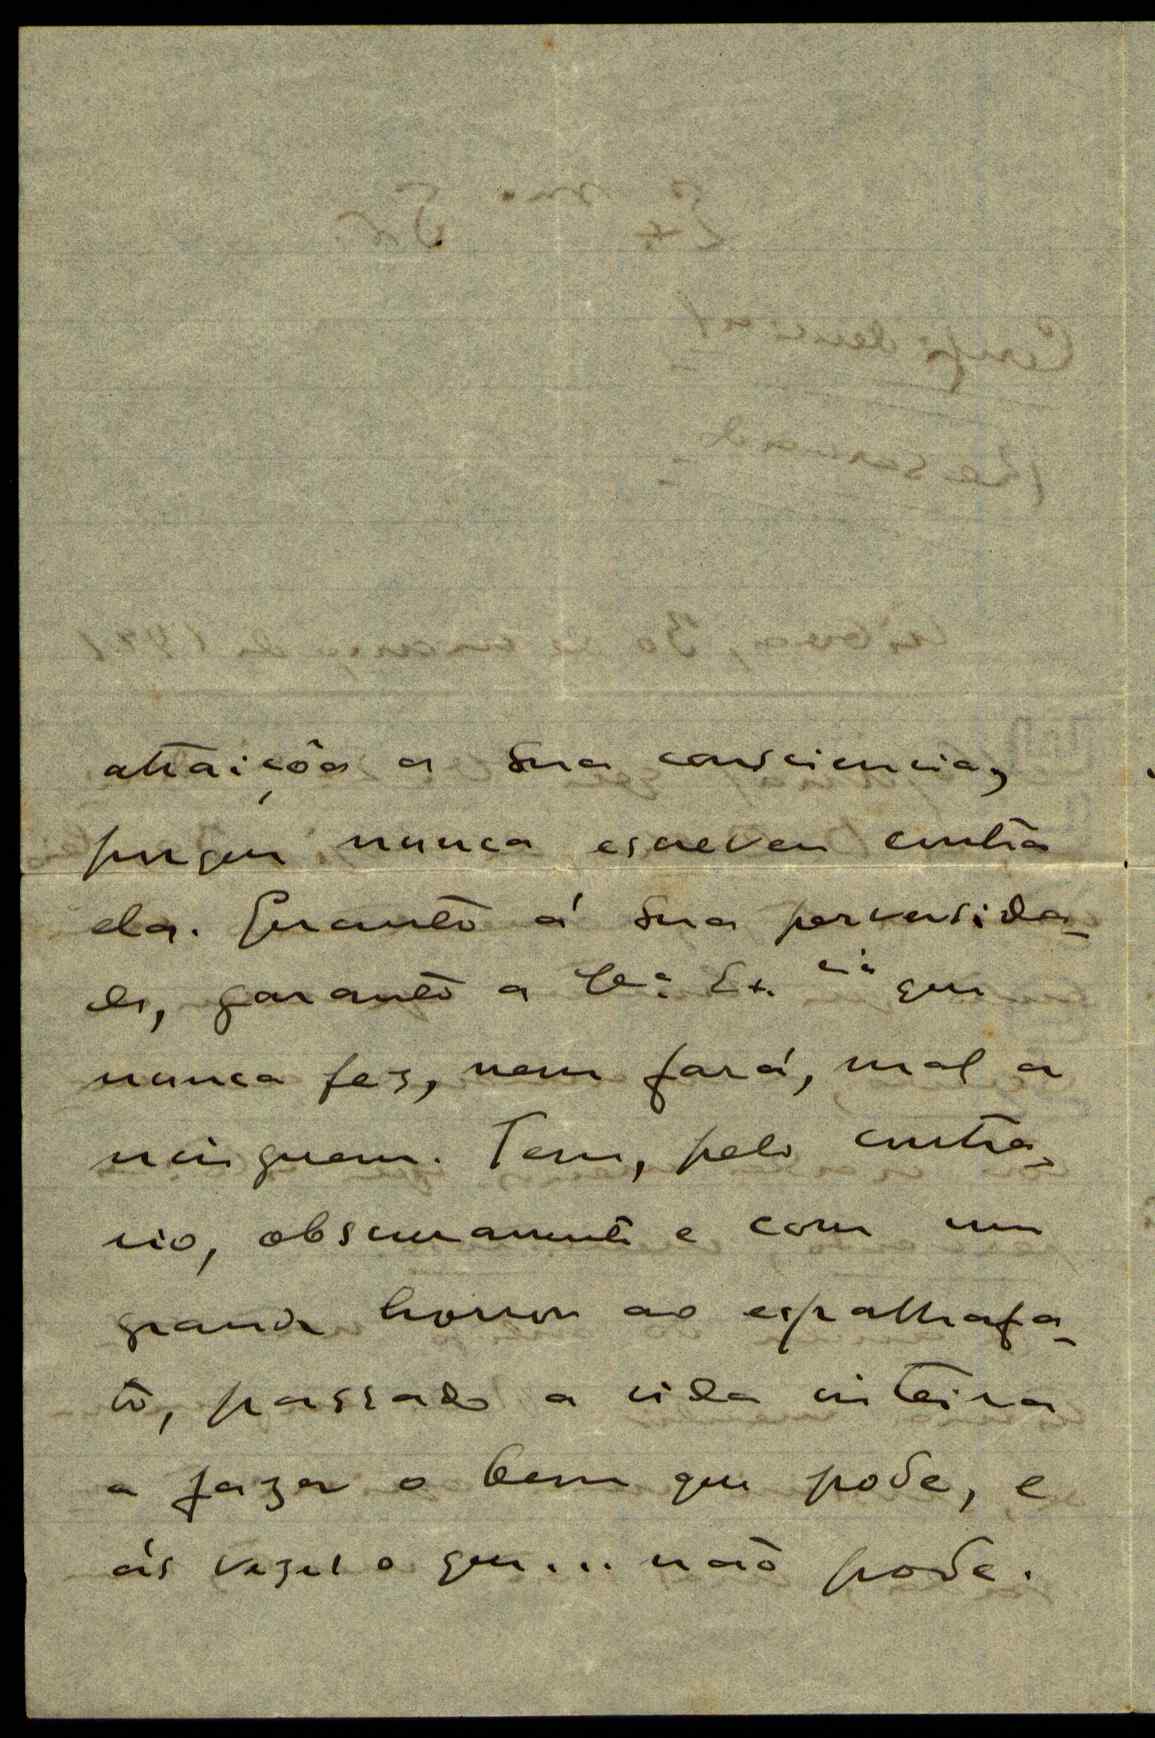 attraiçôa a sua consciencia,
porque nunca escreveu contra
ela. Quanto á sua perversida-
de, garanto a V.ª Ex.cia que
nunca fez, nem fará, mal a
ninguem. Tem, pelo contra-
rio, obscuramente e com um
grande horror ao espalhafa-
to, passado a vida inteira
a fazer o bem que pode, e
ás vezes o que... não pode.